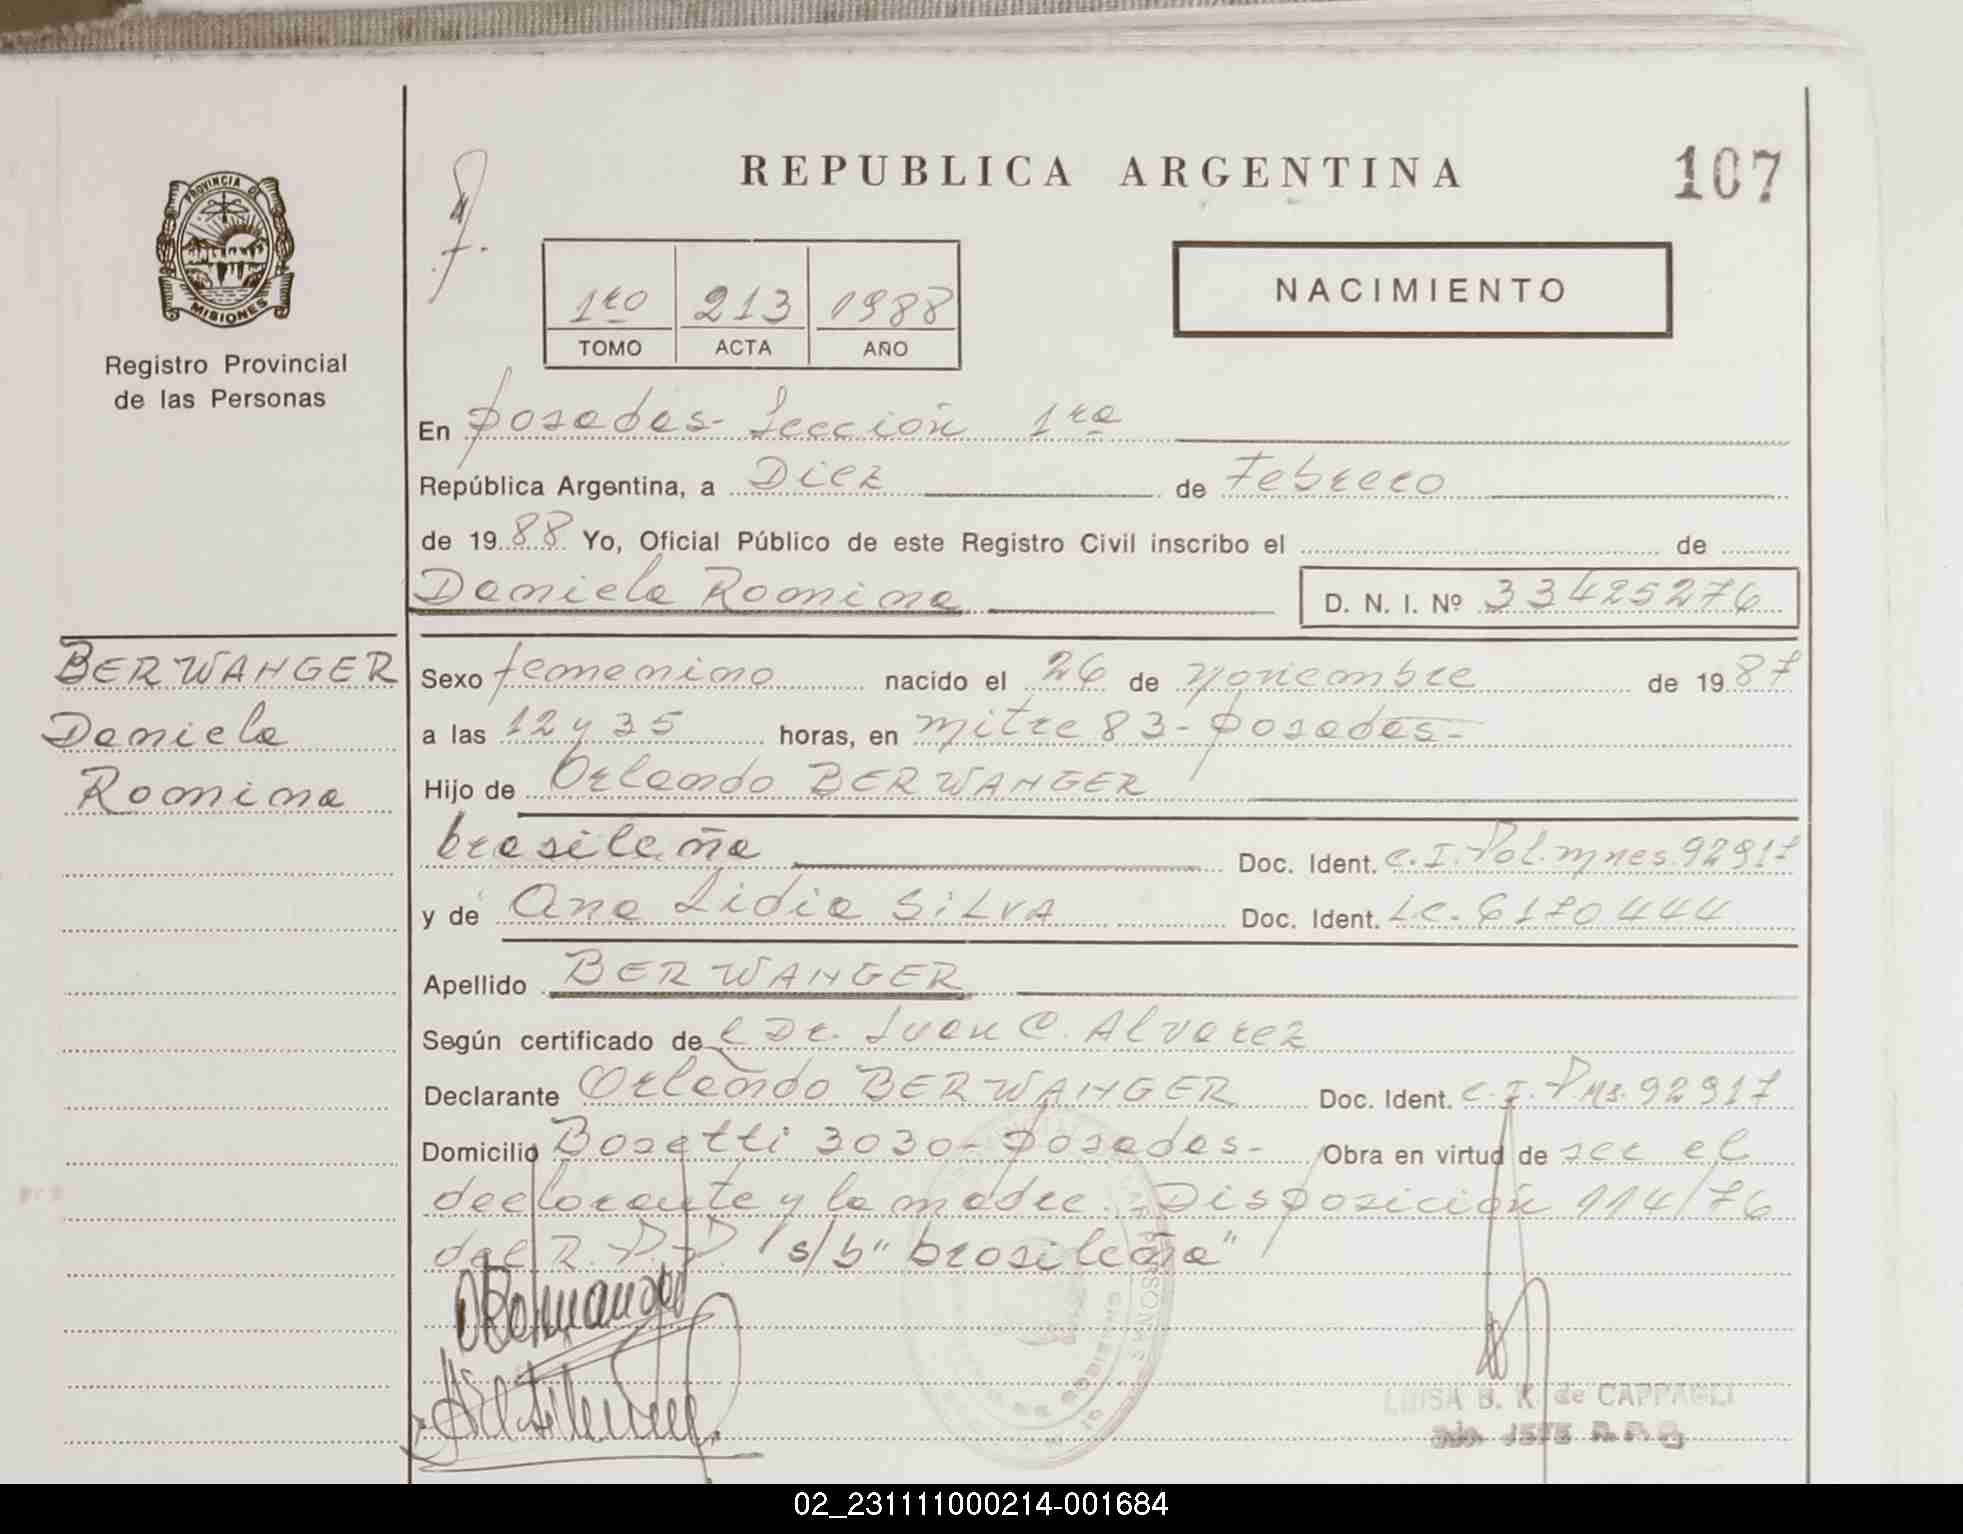 REPUBLICA ARGENTINA
107
PROVINCIA DE
MISIONES
Registro Provincial
de las Personas
1ro 213 1988
TOMO ACTA AÑO
NACIMIENTO
En Posadas- Sección 1ra
República Argentina, a Diez de Febrero
de 1988 Yo, Oficial Público de este Registro Civil inscribo el de
Daniela Romina D. N. I. Nº 33425276
BERWANGER
Daniela
Romina
Sexo femenino nacido el 26 de noviembre de 1987
a las 12 y 35 horas, en mitre 83- posadas-
Hijo de Orlando BERWANGER
brasileña Doc. Ident. C.I. Pol. mnes. 92917
y de Ana Lidia SILVA Doc. Ident. L.C. 6170444
Apellido BERWANGER
Según certificado de l Dr. Juan C. Alvarez
Declarante Orlando BERWANGER Doc. Ident. C.I. P.Ms. 92917
Domicilio Bosetti 3030- posadas- Obra en virtud de ser el
declarante y la madre. Disposición 114/76
del R.P.P. s/b "brasileña"
LUISA B. K. de CAPPAGLI
JEFE R.P.P.
02_231111000214-001684